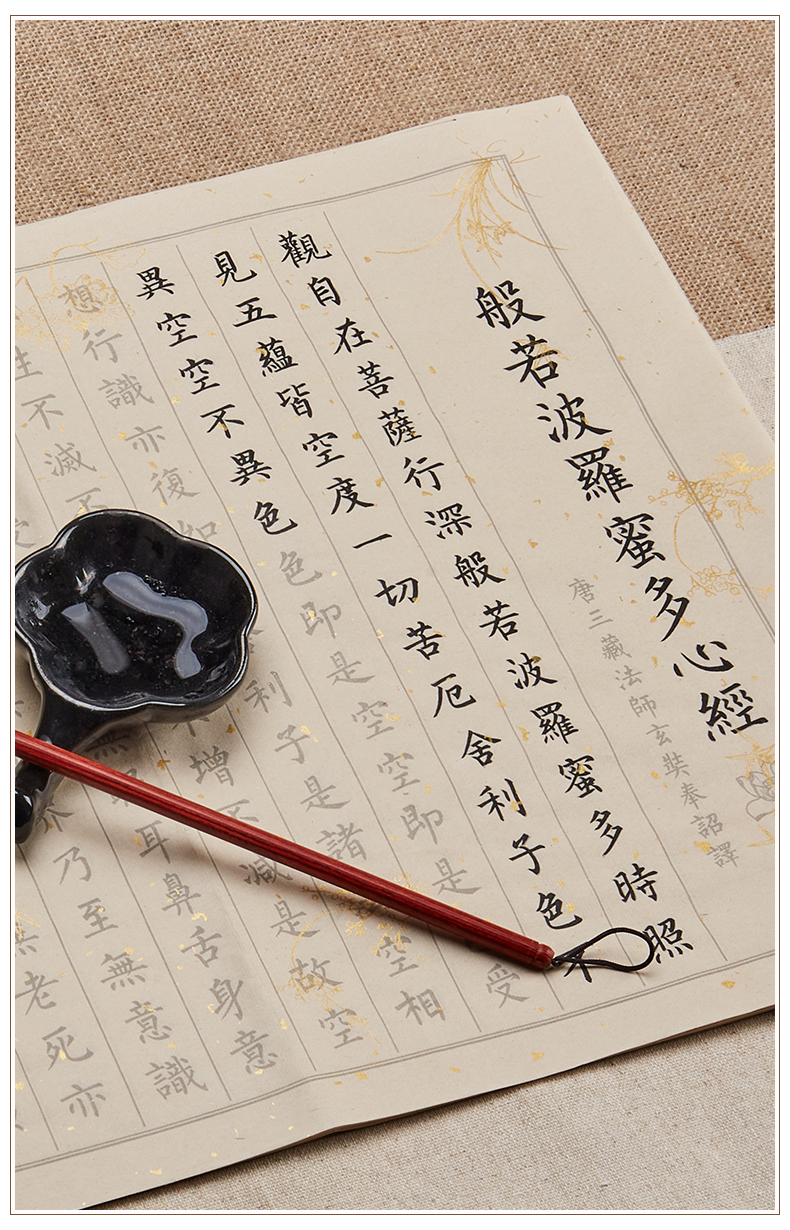 般若波羅蜜多心經
唐三藏法師玄奘奉詔譯
觀自在菩薩行深般若波羅蜜多時照
見五蘊皆空度一切苦厄舍利子色不
異空空不異色色即是空空即是受
想行識亦復如利子是諸空相
生不滅不不增不減是故空
無眼耳鼻舌身意
界乃至無意識
老死亦